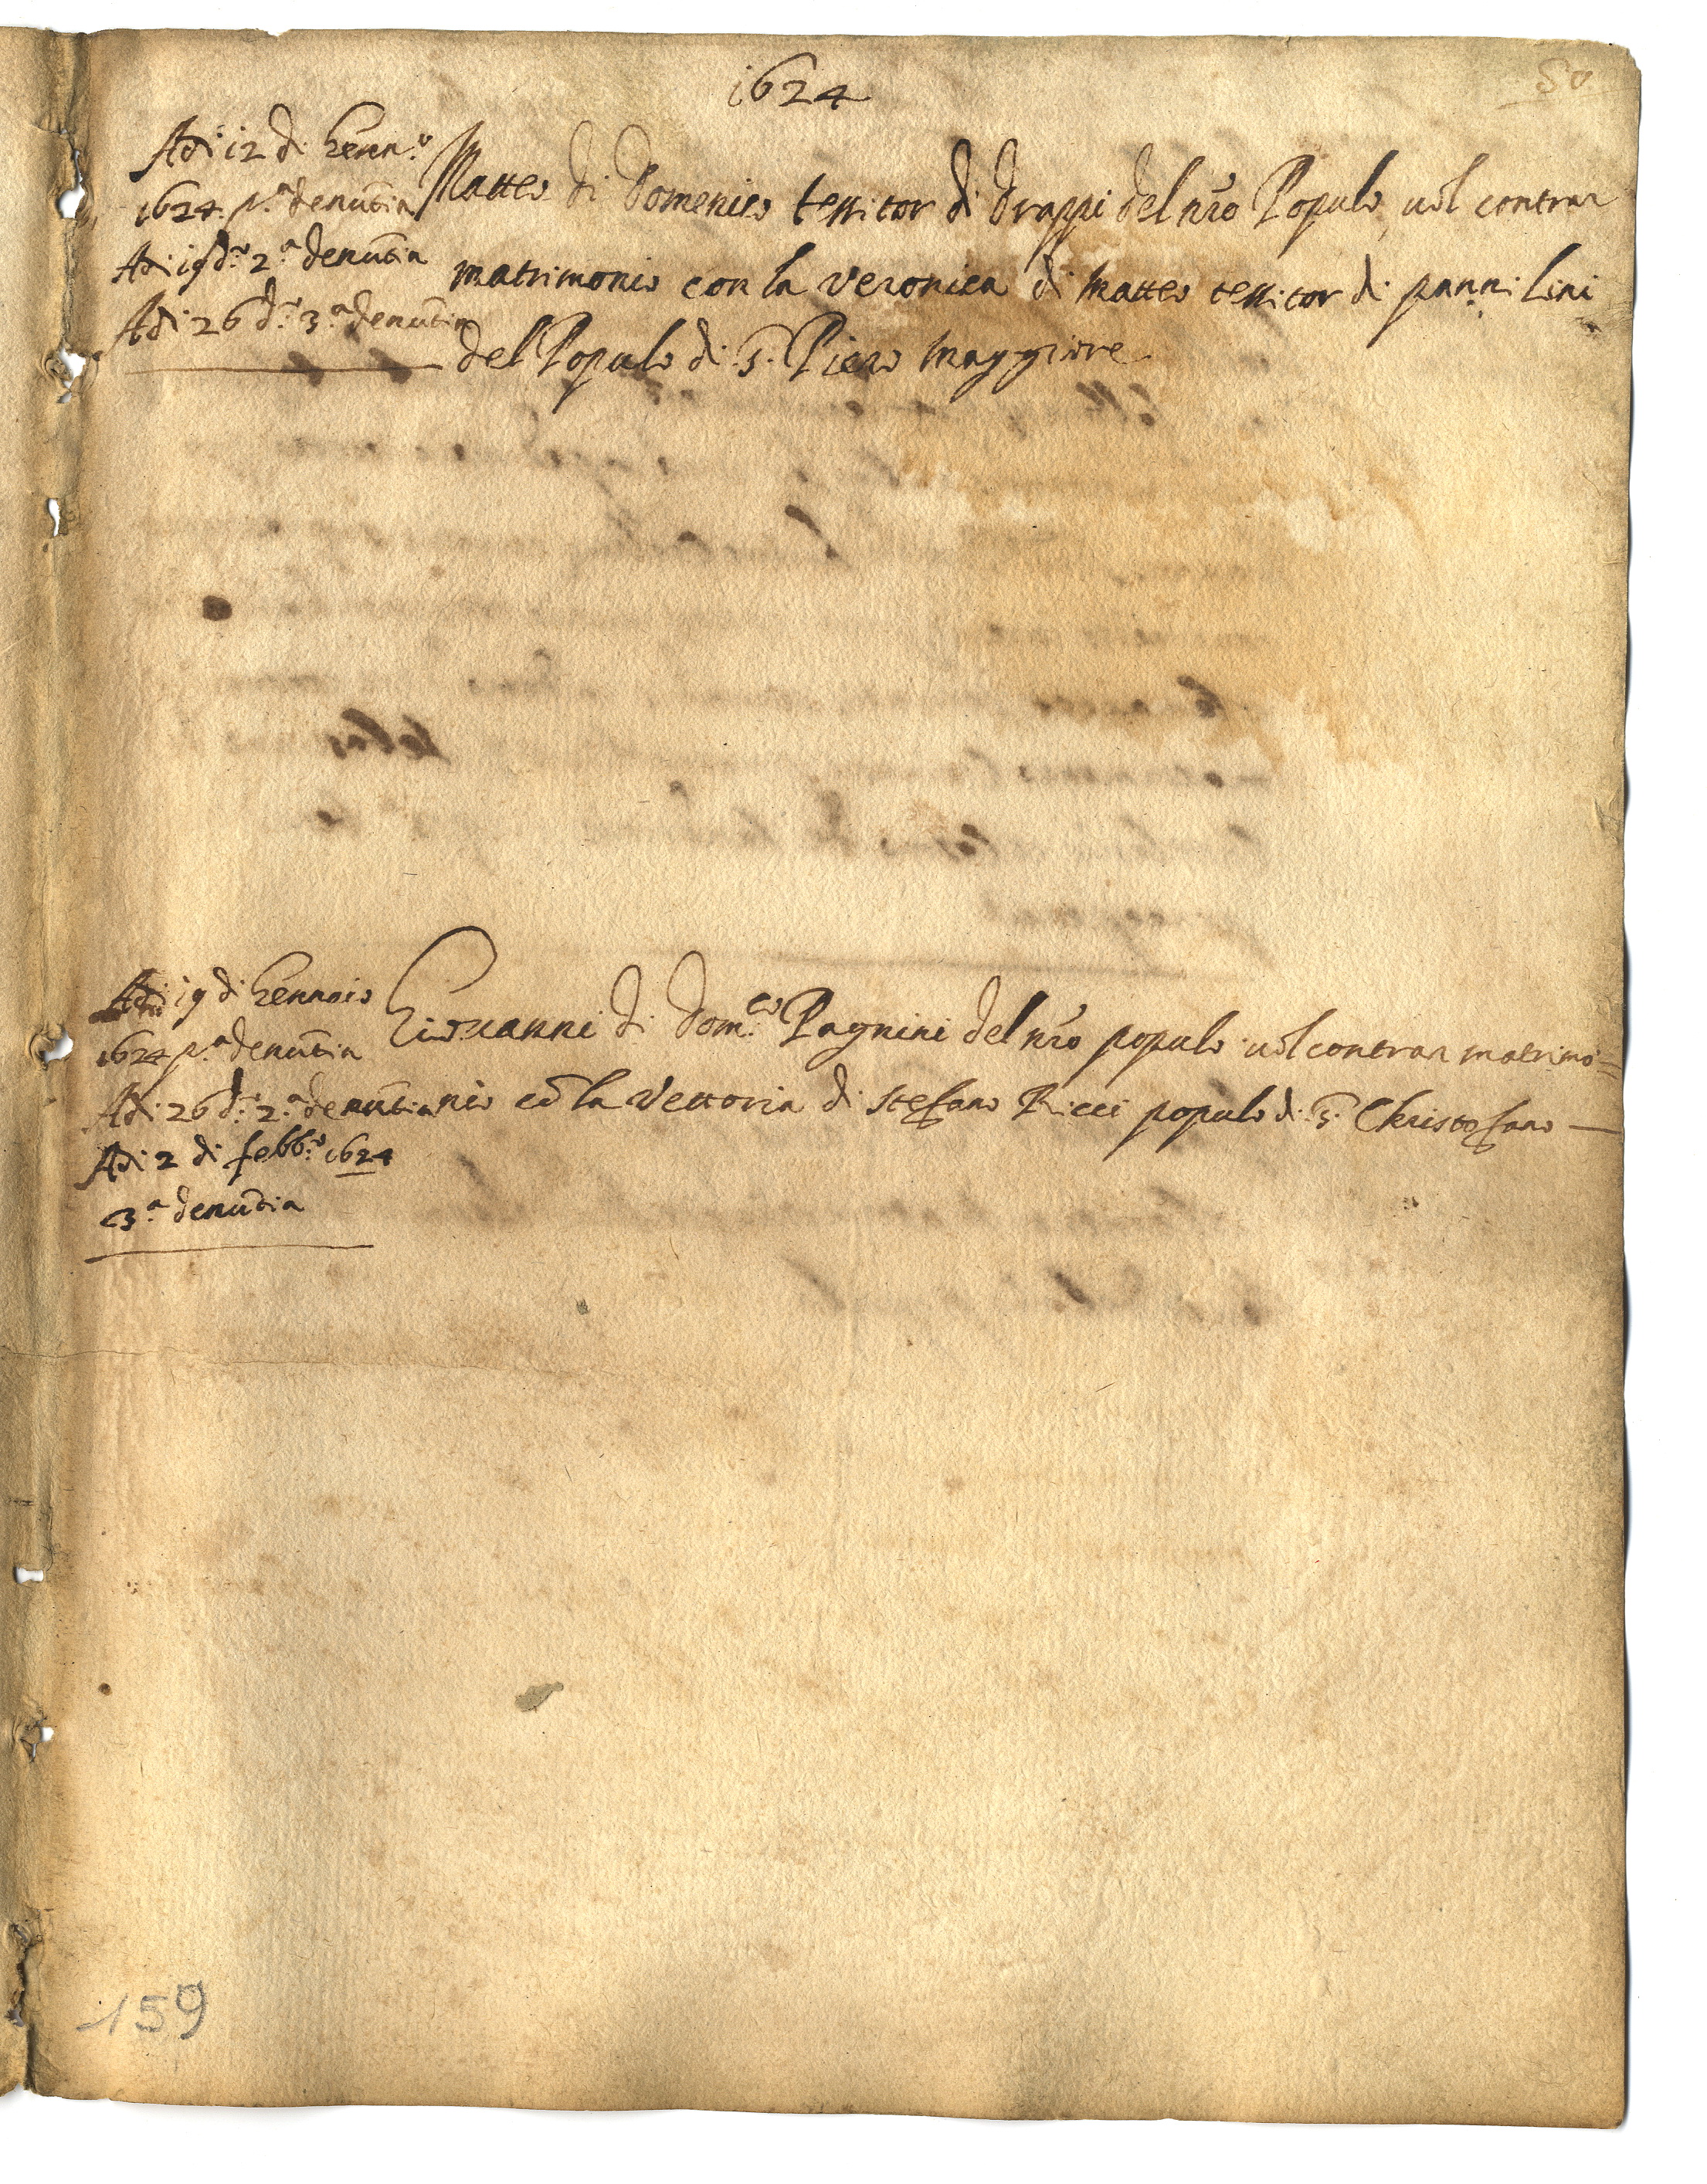 1624
50
Adi 12 di Genn.o
1624 p.a denūtia
Adi 19 d.o 2.a denūtia
Adi 26 d.o 3.a denūtia
Matteo di Domenico tessitor di drappi del nrō Populo, uol contrar
matrimonio con la Veronica di Matteo tessitor di panni lini
del Populo di S. Piero Maggiore
Adi 19 di Gennaio
1624 p.a denūtia
Adi 26 d.o 2.a denūtia
Adi 2 di febb.o 1624
3.a denūtia
Giouanni di Dom.co Pagnini del nrō populo uol contrar matrimo=
nio cō la Vettoria di Stefano Ricci populo di S. Christofano —
159